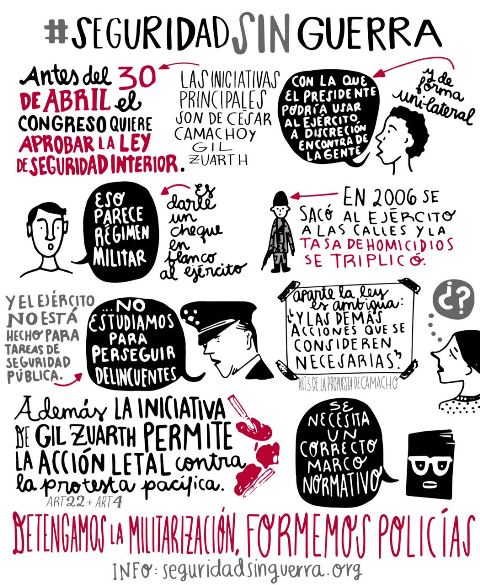 #SEGURIDADSINGUERRA
Antes del 30
DE ABRIL el
CONGRESO QUIERE
APROBAR LA LEY
DE SEGURIDAD INTERIOR.
LAS INICIATIVAS
PRINCIPALES
SON DE CÉSAR
CAMACHO y
GIL
ZUARTH
CON LA QUE
EL PRESIDENTE
PODRÍA USAR
AL EJÉRCITO
A DISCRECIÓN
EN CONTRA DE
LA GENTE
y de
forma
unilateral
ESO
PARECE
RÉGIMEN
MILITAR
es
darle
un
cheque
en
blanco
al ejército
EN 2006 SE
SACÓ AL EJÉRCITO
A LAS CALLES Y LA
TASA DE HOMICIDIOS
SE TRIPLICÓ.
Y EL EJÉRCITO
NO ESTÁ
HECHO PARA
TAREAS DE
SEGURIDAD
PÚBLICA.
...NO
ESTUDIAMOS
PARA
PERSEGUIR
DELINCUENTES
aparte la ley
es ambigua:
"Y LAS DEMÁS
ACCIONES QUE SE
CONSIDEREN
NECESARIAS."
ART 3 DE LA PROPUESTA DE CAMACHO
¿?
Además LA INICIATIVA
DE GIL ZUARTH PERMITE
LA ACCIÓN LETAL contra
la protesta pacífica.
ART 22 + ART 4
SE
NECESITA
UN
CORRECTO
MARCO
NORMATIVO
DETENGAMOS LA MILITARIZACIÓN, FORMEMOS POLICÍAS
INFO: seguridadsinguerra.org